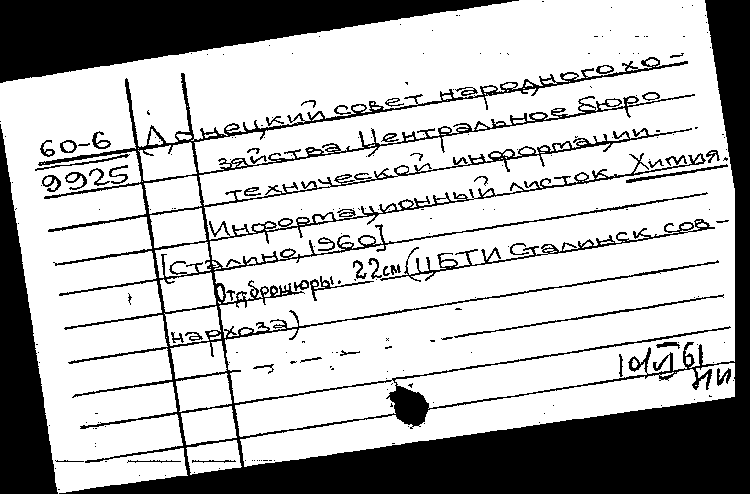 60-6
9925
Донецкий совет народного хо-
зяйства. Центральное бюро
технической информации.
Информационный листок. Химия.
[Сталино, 1960]
Отд. брошюры. 22 см. (ЦБТИ Сталинск. сов-
нархоза)
61